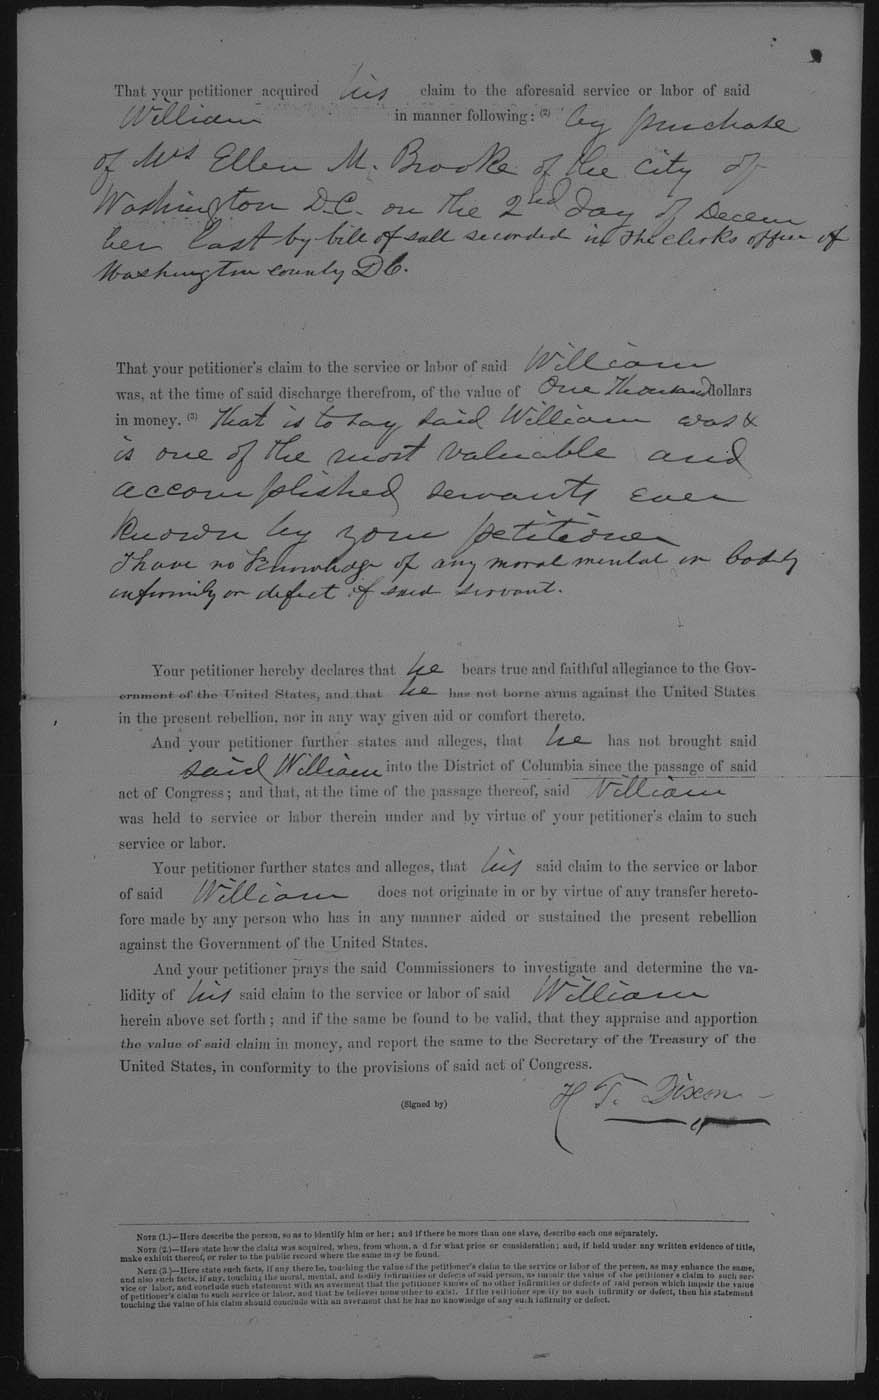 That your petitioner acquired his claim to the aforesaid service or labor of said
William in manner following: (2) by purchase
of Mrs Ellen M. Brooke of the city of
Washington D.C. on the 2nd day of Decem
ber last by bill of sale recorded in the clerks office of
Washington county DC.
That your petitioner's claim to the service or labor of said William
was, at the time of said discharge therefrom, of the value of One Thousand dollars
in money. (3) That is to say said William was &
is one of the most valuable and
accomplished servants ever
known by your petitioner
I have no knowledge of any moral mental or bodily
infirmity or defect of said servant.
Your petitioner hereby declares that he bears true and faithful allegiance to the Gov-
ernment of the United States, and that he has not borne arms against the United States
in the present rebellion, nor in any way given aid or comfort thereto.
And your petitioner further states and alleges, that he has not brought said
said William into the District of Columbia since the passage of said
act of Congress; and that, at the time of the passage thereof, said William
was held to service or labor therein under and by virtue of your petitioner's claim to such
service or labor.
Your petitioner further states and alleges, that his said claim to the service or labor
of said William does not originate in or by virtue of any transfer hereto-
fore made by any person who has in any manner aided or sustained the present rebellion
against the Government of the United States.
And your petitioner prays the said Commissioners to investigate and determine the va-
lidity of his said claim to the service or labor of said William
herein above set forth; and if the same be found to be valid, that they appraise and apportion
the value of said claim in money, and report the same to the Secretary of the Treasury of the
United States, in conformity to the provisions of said act of Congress.
(Signed by) H T. Dixon
NOTE (1.)—Here describe the person, so as to identify him or her; and if there be more than one slave, describe each one separately.
NOTE (2.)—Here state how the claim was acquired, when, from whom, a d for what price or consideration; and, if held under any written evidence of title,
make exhibit thereof, or refer to the public record where the same may be found.
NOTE (3.)—Here state such facts, if any there be, touching the value of the petitioner's claim to the service or labor of the person, as may enhance the same,
and also such facts, if any, touching the moral, mental, and bodily infirmities or defects of said person, as impair the value of the petitioner's claim to such ser-
vice or labor, and conclude such statement with an averment that the petitioner knows of no other infirmities or defects of said person which impair the value
of petitioner's claim to such service or labor, and that he believes none other to exist. If the petitioner specify no such infirmity or defect, then his statement
touching the value of his claim should conclude with an averment that he has no knowledge of any such infirmity or defect.